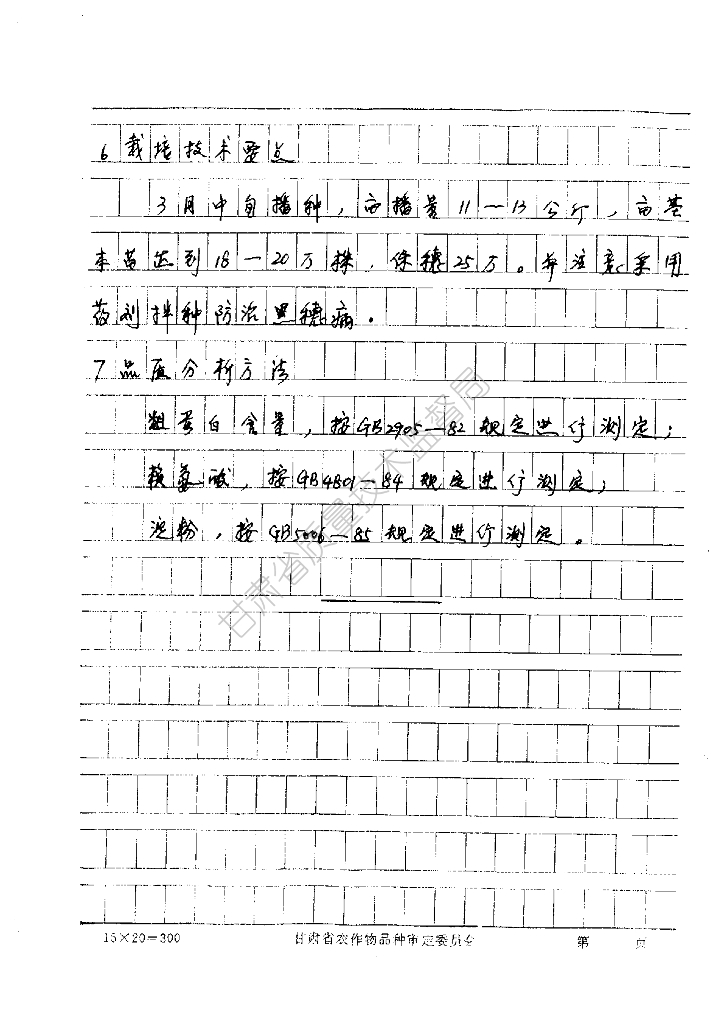 6 栽培技术要点
3月中旬播种，亩播量11—13公斤，亩基
本苗达到18—20万株，保穗25万。并注意采用
药剂拌种防治黑穗病。
7 品质分析方法
粗蛋白含量，按GB2905—82规定进行测定；
赖氨酸，按GB4801—84规定进行测定；
淀粉，按GB5006—85规定进行测定。
甘肃省质量技术监督局
15×20=300 甘肃省农作物品种审定委员会 第 页